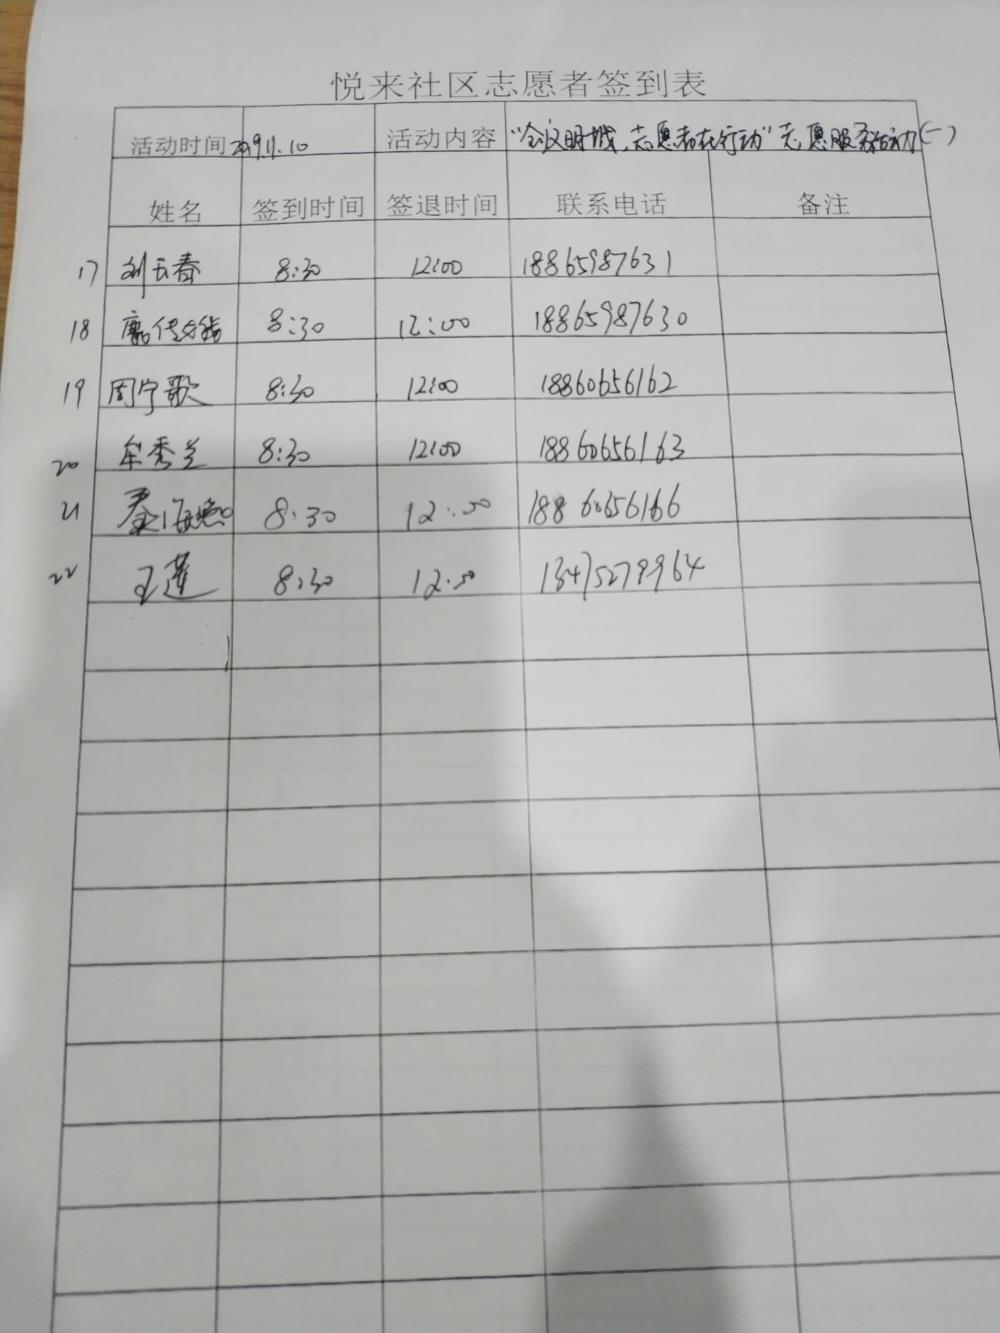 悦来社区志愿者签到表
活动时间 2019.11.10 活动内容 志愿者在行动" 志愿服务活动(一)
姓名 签到时间 签退时间 联系电话 备注
17 刘玉春 8:30 12:00 18865987631
18 8:30 12:00 18865987630
19 周宁歌 8:30 12:00 18860656162
20 牟秀兰 8:30 12:00 18860656163
21 秦海 8:30 12:00 18860656166
22 王莲 8:30 12:00 13475279964